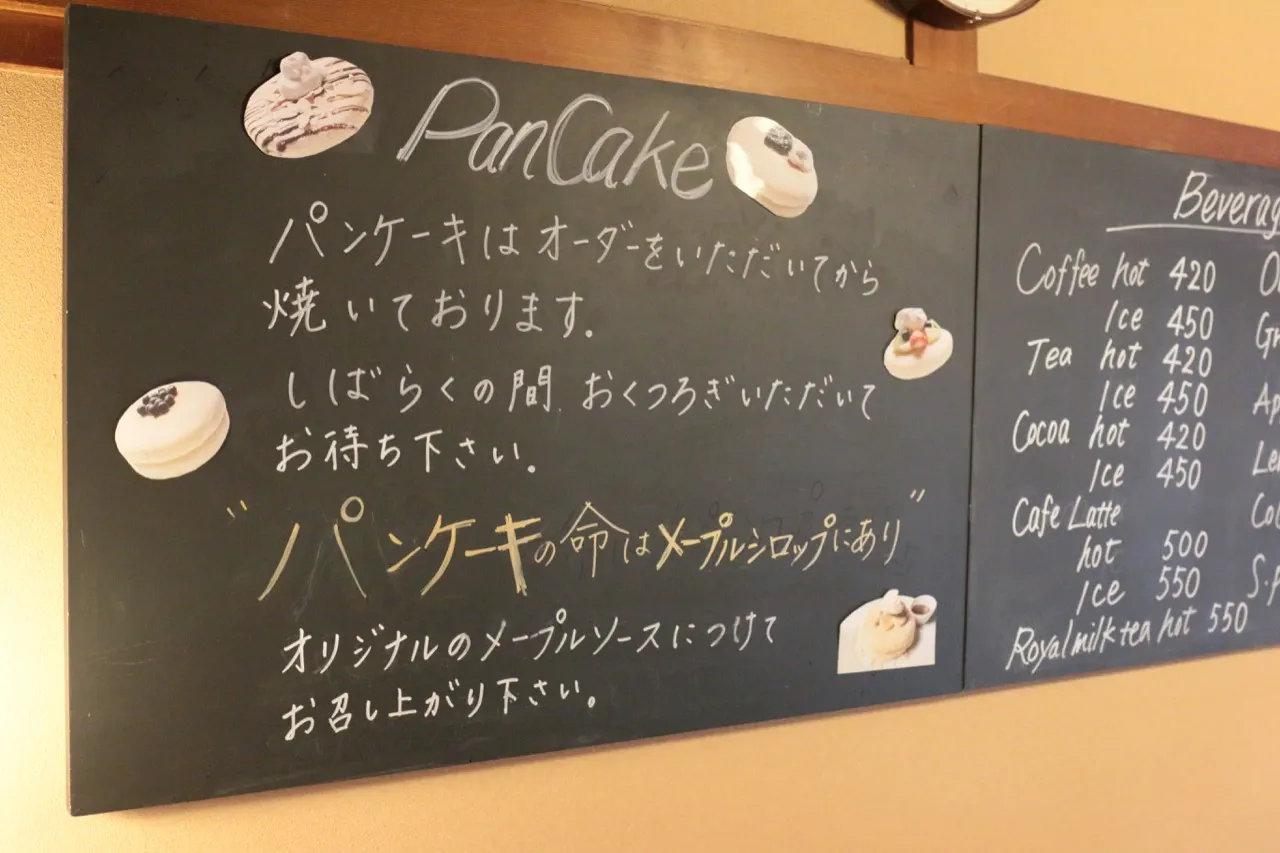 PanCake
パンケーキはオーダーをいただいてから
焼いております.
しばらくの間 おくつろぎいただいて
お待ち下さい.
"パンケーキの命はメープルシロップにあり"
オリジナルのメープルソースにつけて
お召し上がり下さい。
Coffee hot 420
Ice 450
Tea hot 420
Ice 450
Cocoa hot 420
Ice 450
Cafe Latte
hot 500
Ice 550
Royal milk tea hot 550